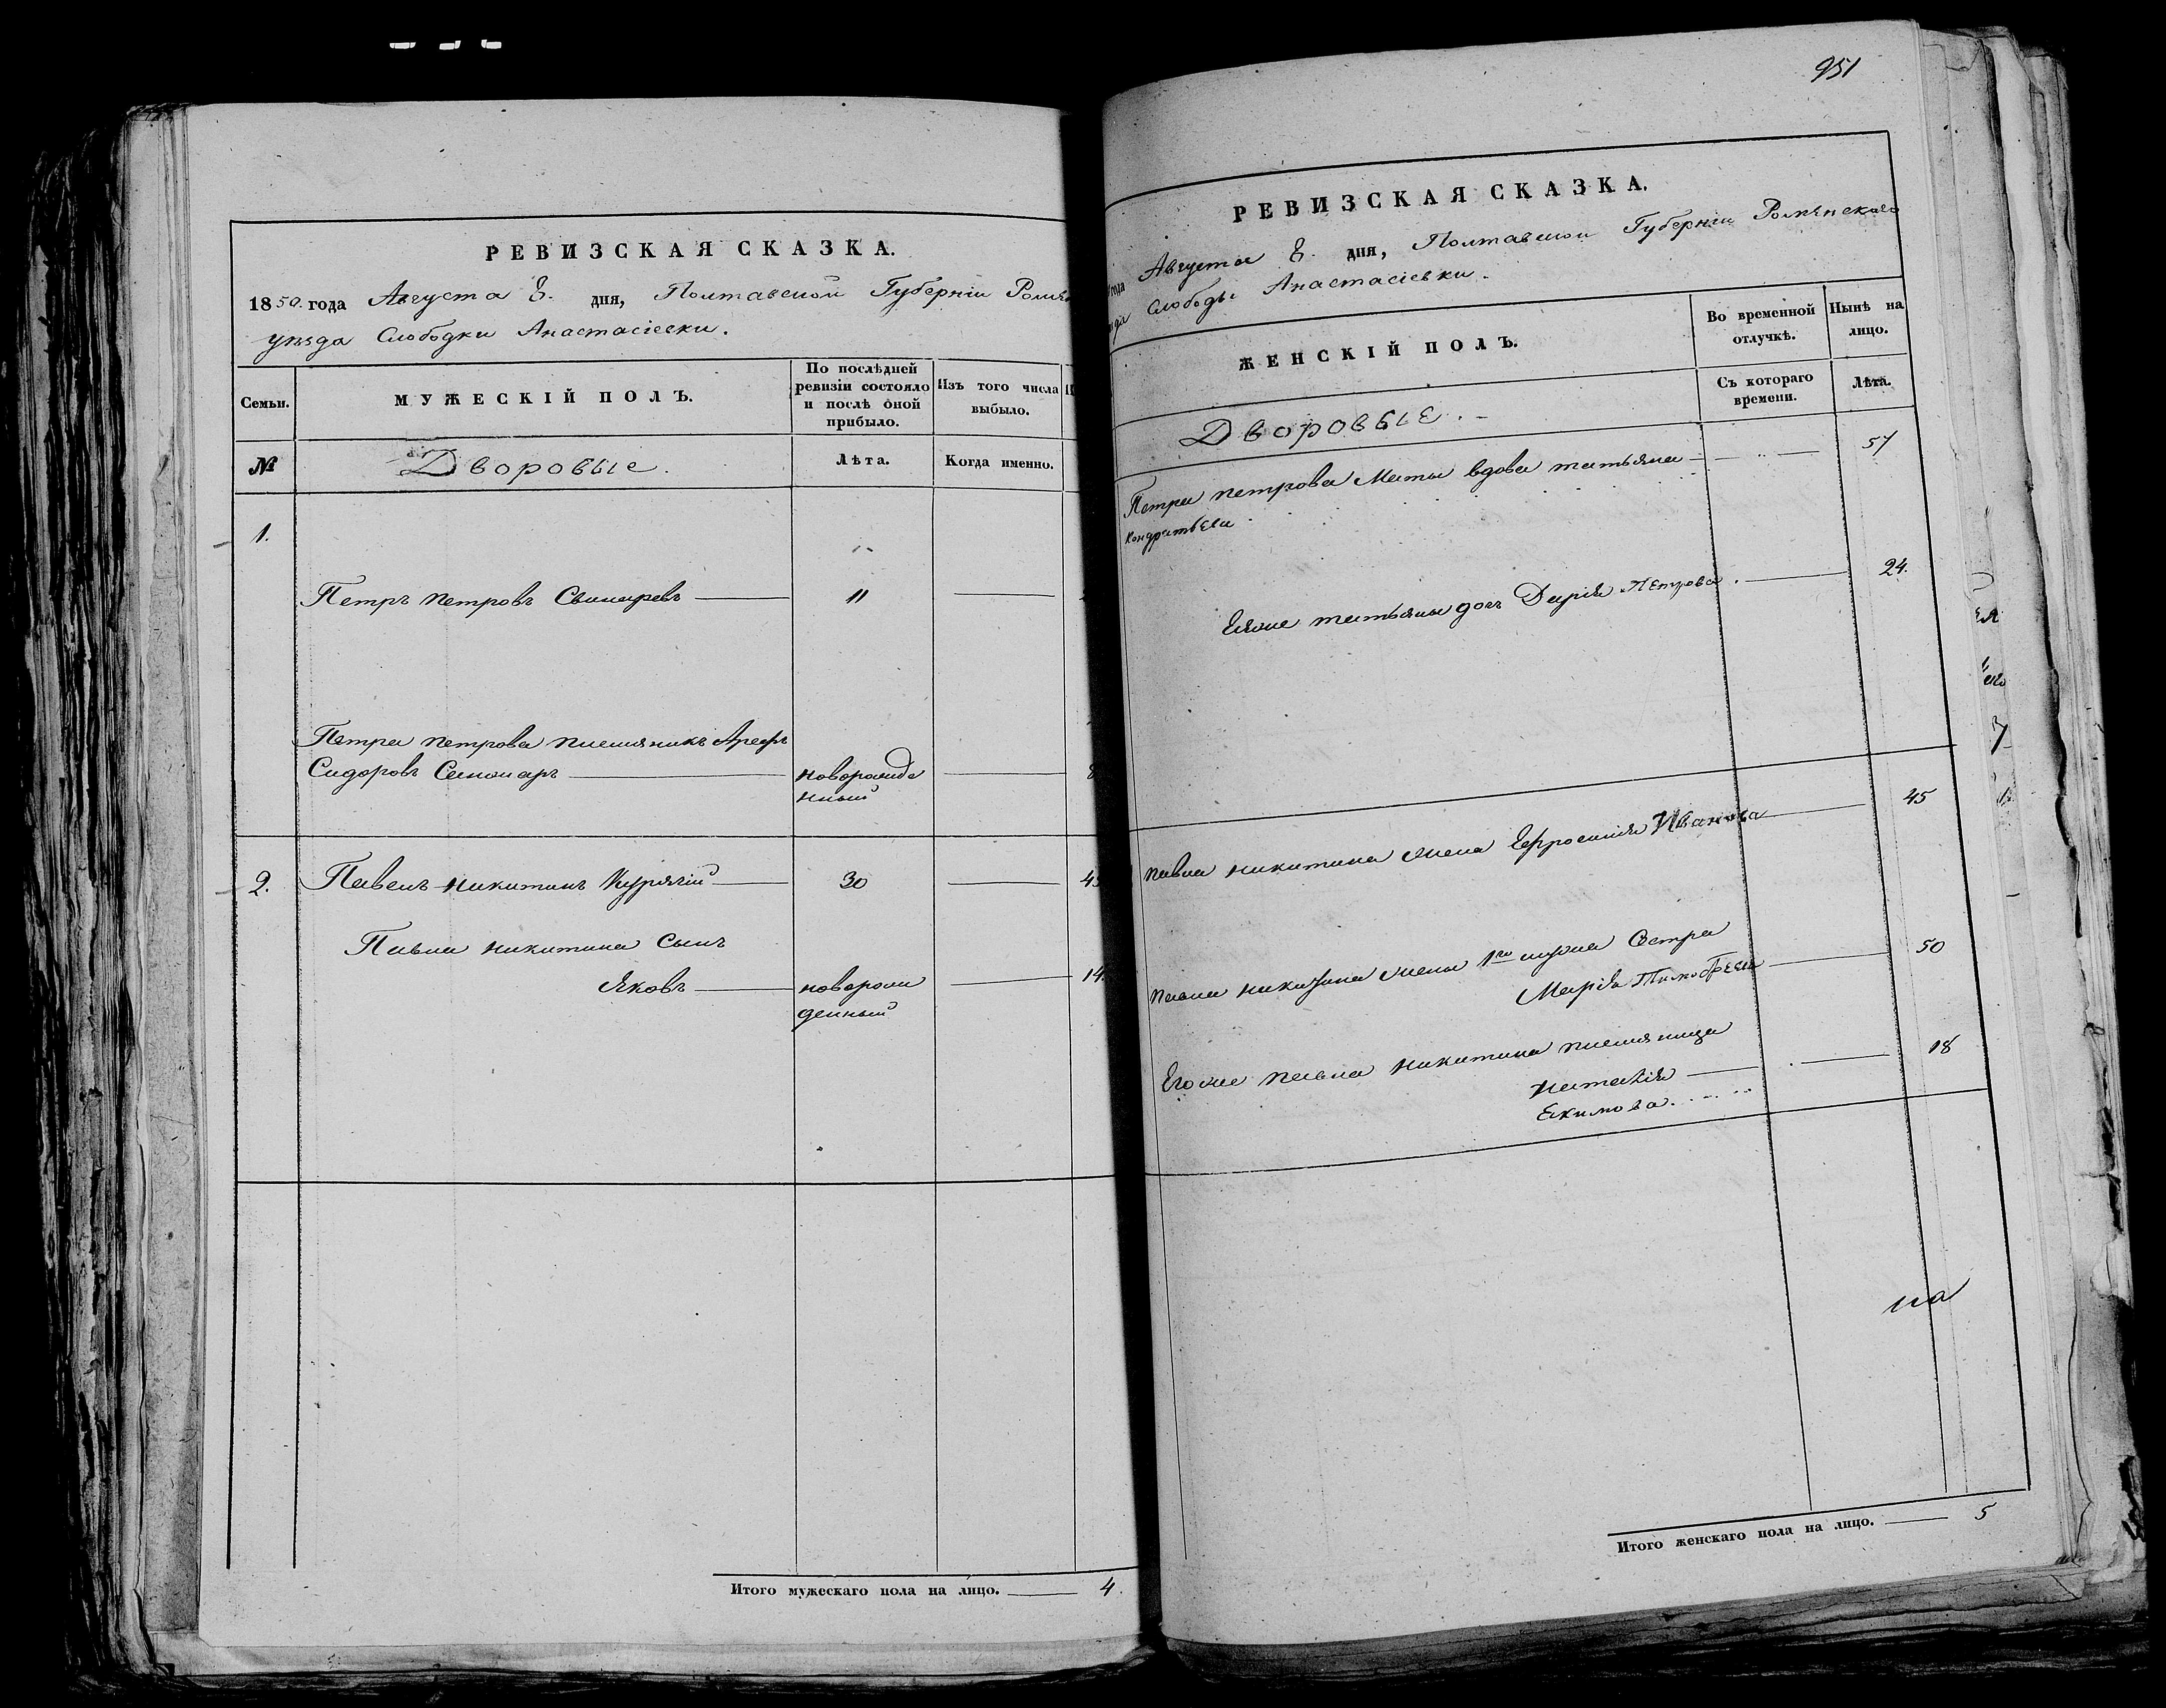 РЕВИЗСКАЯ СКАЗКА.
1850. года Августа 8. дня, Полтавской Губерніи
уѣзда Слободки Анастасіевки.
Семьи.
МУЖЕСКІЙ ПОЛЪ.
По послѣдней
ревизіи состояло
и послѣ оной
прибыло.
Изъ того числа
выбыло.
№
Дворовые.
Лѣта.
Когда именно.
1.
Петръ Петровъ 11
Петра Петрова племяникъ
Сидоровъ новорожде
нный
2. Павелъ Никитинъ Курячій 30
Павла Никитина Сынъ
Яковъ новорож 14
денный
Итого мужескаго пола на лицо. 4.
951
РЕВИЗСКАЯ СКАЗКА.
Августа 8. дня, Полтавской Губерніи Роменскаго
Слободы Анастасіевки.
ЖЕНСКІЙ ПОЛЪ.
Во временной
отлучкѣ.
Нынѣ на
лицо.
Съ котораго
времени.
Лѣта.
Дворовые.
Петра Петрова Мать вдова татьяна 57
Кондратьева
Еяже татьяны доч Дарія Петрова 24.
Павла Никитина жена Ефросинія Иванова 45
Павла Никитина жены 1го мужа Сестра
Марія 50
Егоже Павла Никитина племяница
Наталія 18
Екимова
Итого женскаго пола на лицо. 5